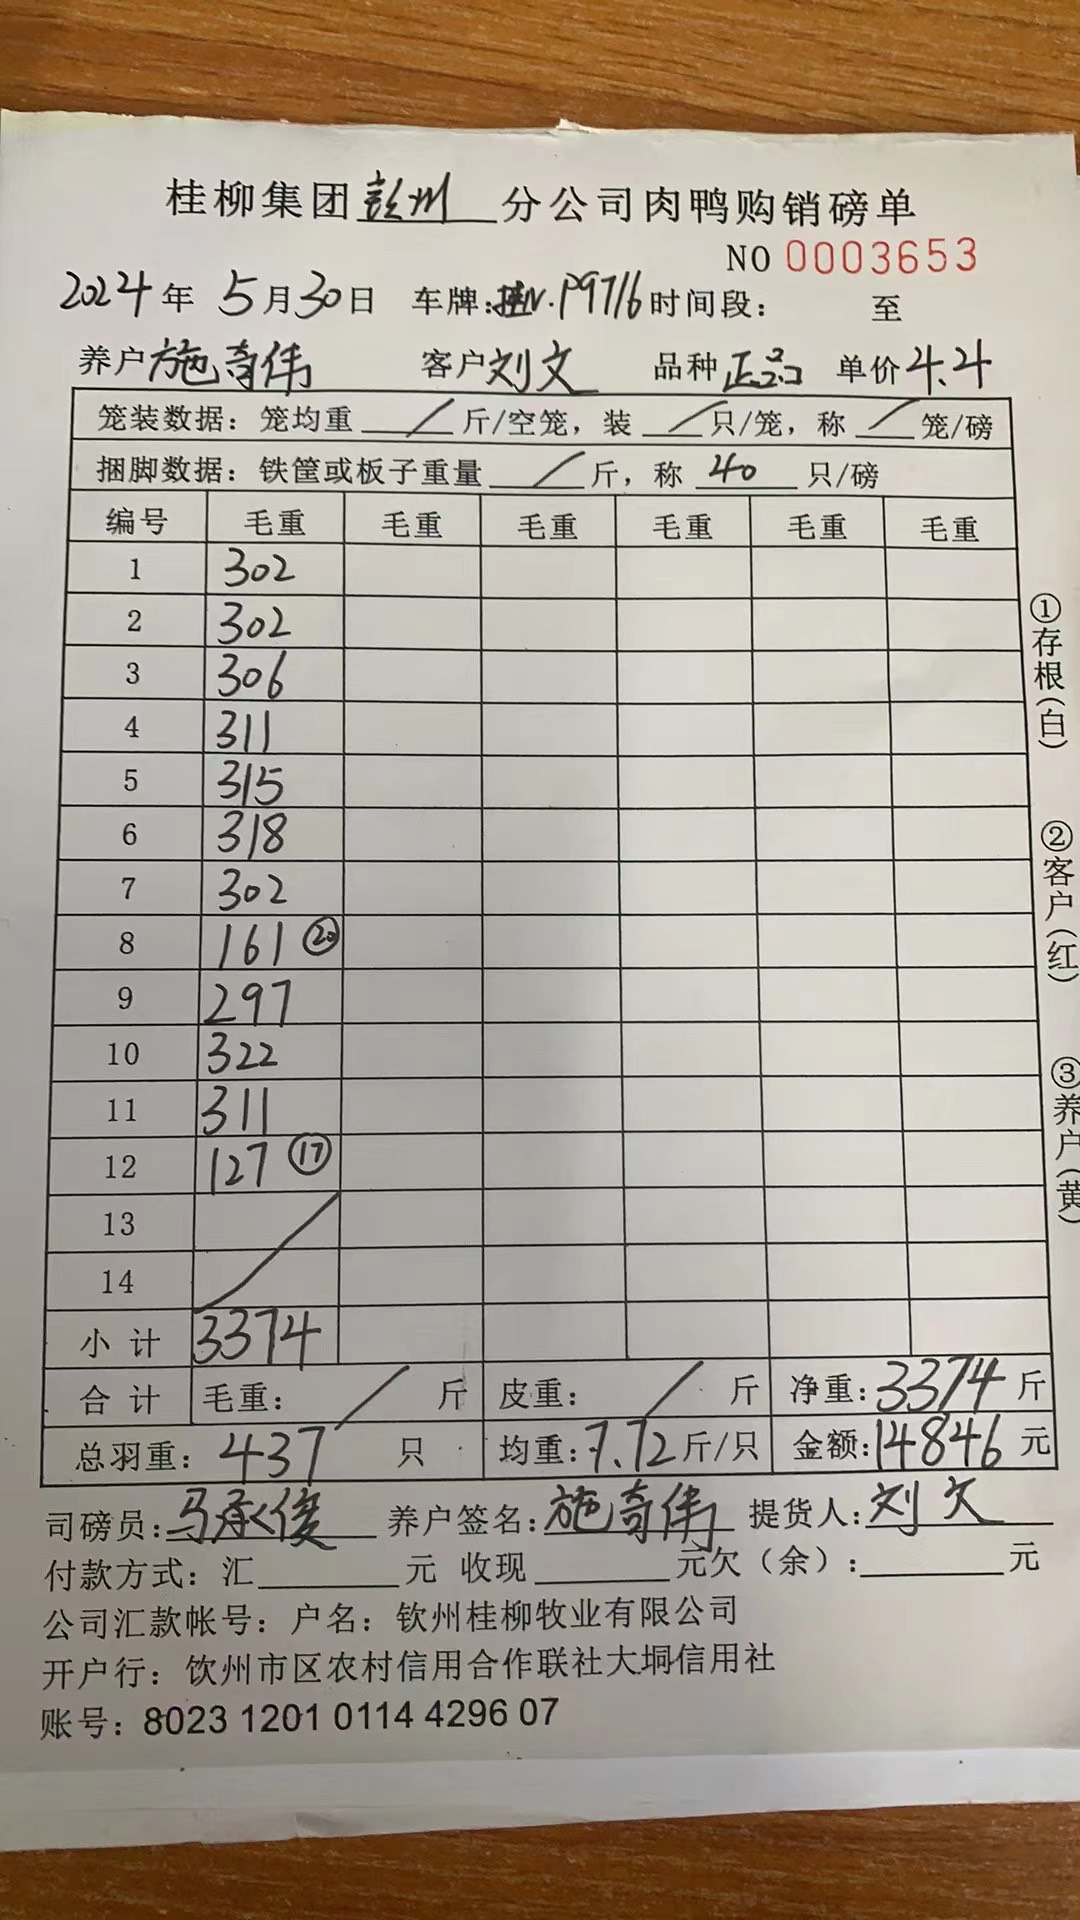 桂柳集团彭州分公司肉鸭购销磅单
NO 0003653
2024年 5月30日 车牌:桂N·P9716 时间段: 至
养户 施奇伟 客户 刘文 品种 正品 单价 4.4
笼装数据: 笼均重 / 斤/空笼, 装 / 只/笼, 称 / 笼/磅
捆脚数据: 铁筐或板子重量 / 斤, 称 40 只/磅
编号 毛重 毛重 毛重 毛重 毛重 毛重
1 302
2 302
3 306
4 311
5 315
6 318
7 302
8 161 ⑳
9 297
10 322
11 311
12 127 ⑰
13
14
小计 3374
合计 毛重: / 斤 皮重: / 斤 净重: 3374 斤
总羽重: 437 只 均重: 7.72 斤/只 金额: 14846 元
司磅员: 马承俊 养户签名: 施奇伟 提货人: 刘文
付款方式: 汇 元 收现 元欠(余): 元
公司汇款帐号: 户名: 钦州桂柳牧业有限公司
开户行: 钦州市区农村信用合作联社大垌信用社
账号: 8023 1201 0114 4296 07
①存根(白)
②客户(红)
③养户(黄)